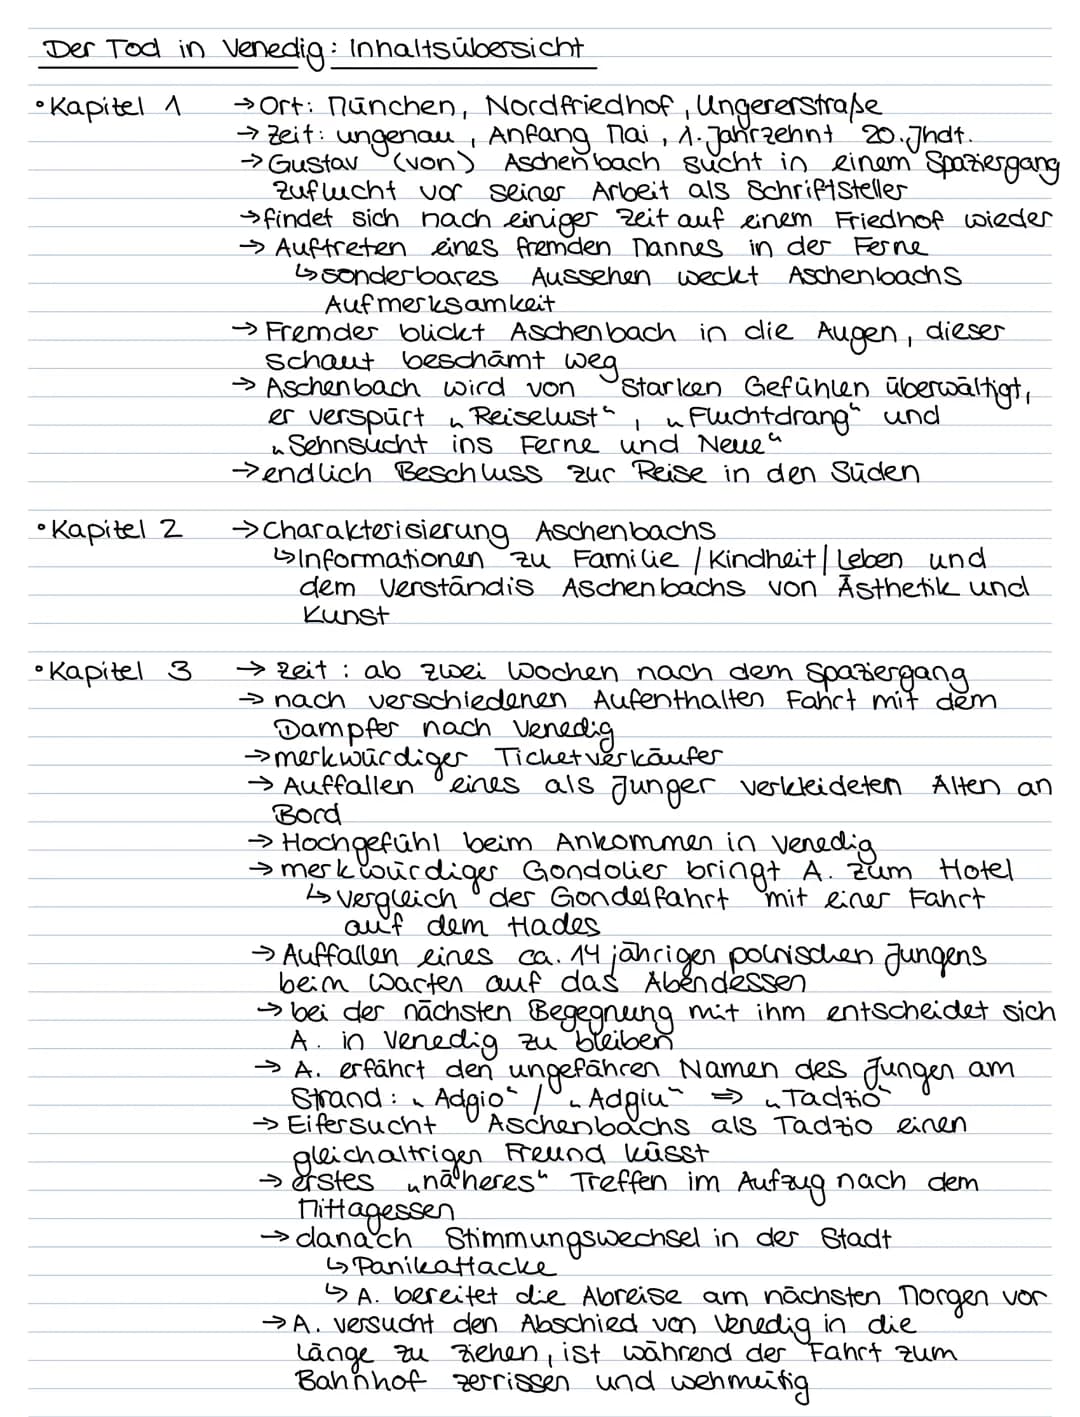 Der Tod in Venedig: Inhaltsübersicht
• Kapitel 1 → Ort: München, Nordfriedhof, Ungererstraße
→ Zeit: ungenau, Anfang Mai, 1. Jahrzehnt 20. Jhdt.
→ Gustav (von) Aschenbach sucht in einem Spaziergang
Zuflucht vor seiner Arbeit als Schriftsteller
→ findet sich nach einiger Zeit auf einem Friedhof wieder
→ Auftreten eines fremden Mannes in der Ferne
↳ sonderbares Aussehen weckt Aschenbachs
Aufmerksamkeit
→ Fremder blickt Aschenbach in die Augen, dieser
schaut beschämt weg
→ Aschenbach wird von starken Gefühlen überwältigt,
er verspürt „Reiselust", „Fluchtdrang" und
„Sehnsucht ins Ferne und Neue"
→ endlich Beschluss zur Reise in den Süden
• Kapitel 2 → Charakterisierung Aschenbachs
↳ Informationen zu Familie / Kindheit / Leben und
dem Verständis Aschenbachs von Ästhetik und
Kunst
• Kapitel 3 → Zeit: ab zwei Wochen nach dem Spaziergang
→ nach verschiedenen Aufenthalten Fahrt mit dem
Dampfer nach Venedig
→ merkwürdiger Ticketverkäufer
→ Auffallen eines als Junger verkleideten Alten an
Bord
→ Hochgefühl beim Ankommen in Venedig
→ merkwürdiger Gondolier bringt A. zum Hotel
↳ Vergleich der Gondelfahrt mit einer Fahrt
auf dem Hades
→ Auffallen eines ca. 14 jährigen polnischen Jungens
beim Warten auf das Abendessen
→ bei der nächsten Begegnung mit ihm entscheidet sich
A. in Venedig zu bleiben
→ A. erfährt den ungefähren Namen des Jungen am
Strand: „Adgio" / „Adgiu" ⇒ „Tadzio"
→ Eifersucht Aschenbachs als Tadzio einen
gleichaltrigen Freund küsst
→ erstes „näheres" Treffen im Aufzug nach dem
Mittagessen
→ danach Stimmungswechsel in der Stadt
↳ Panikattacke
↳ A. bereitet die Abreise am nächsten Morgen vor
→ A. versucht den Abschied von Venedig in die
Länge zu ziehen, ist während der Fahrt zum
Bahnhof zerrissen und wehmütig